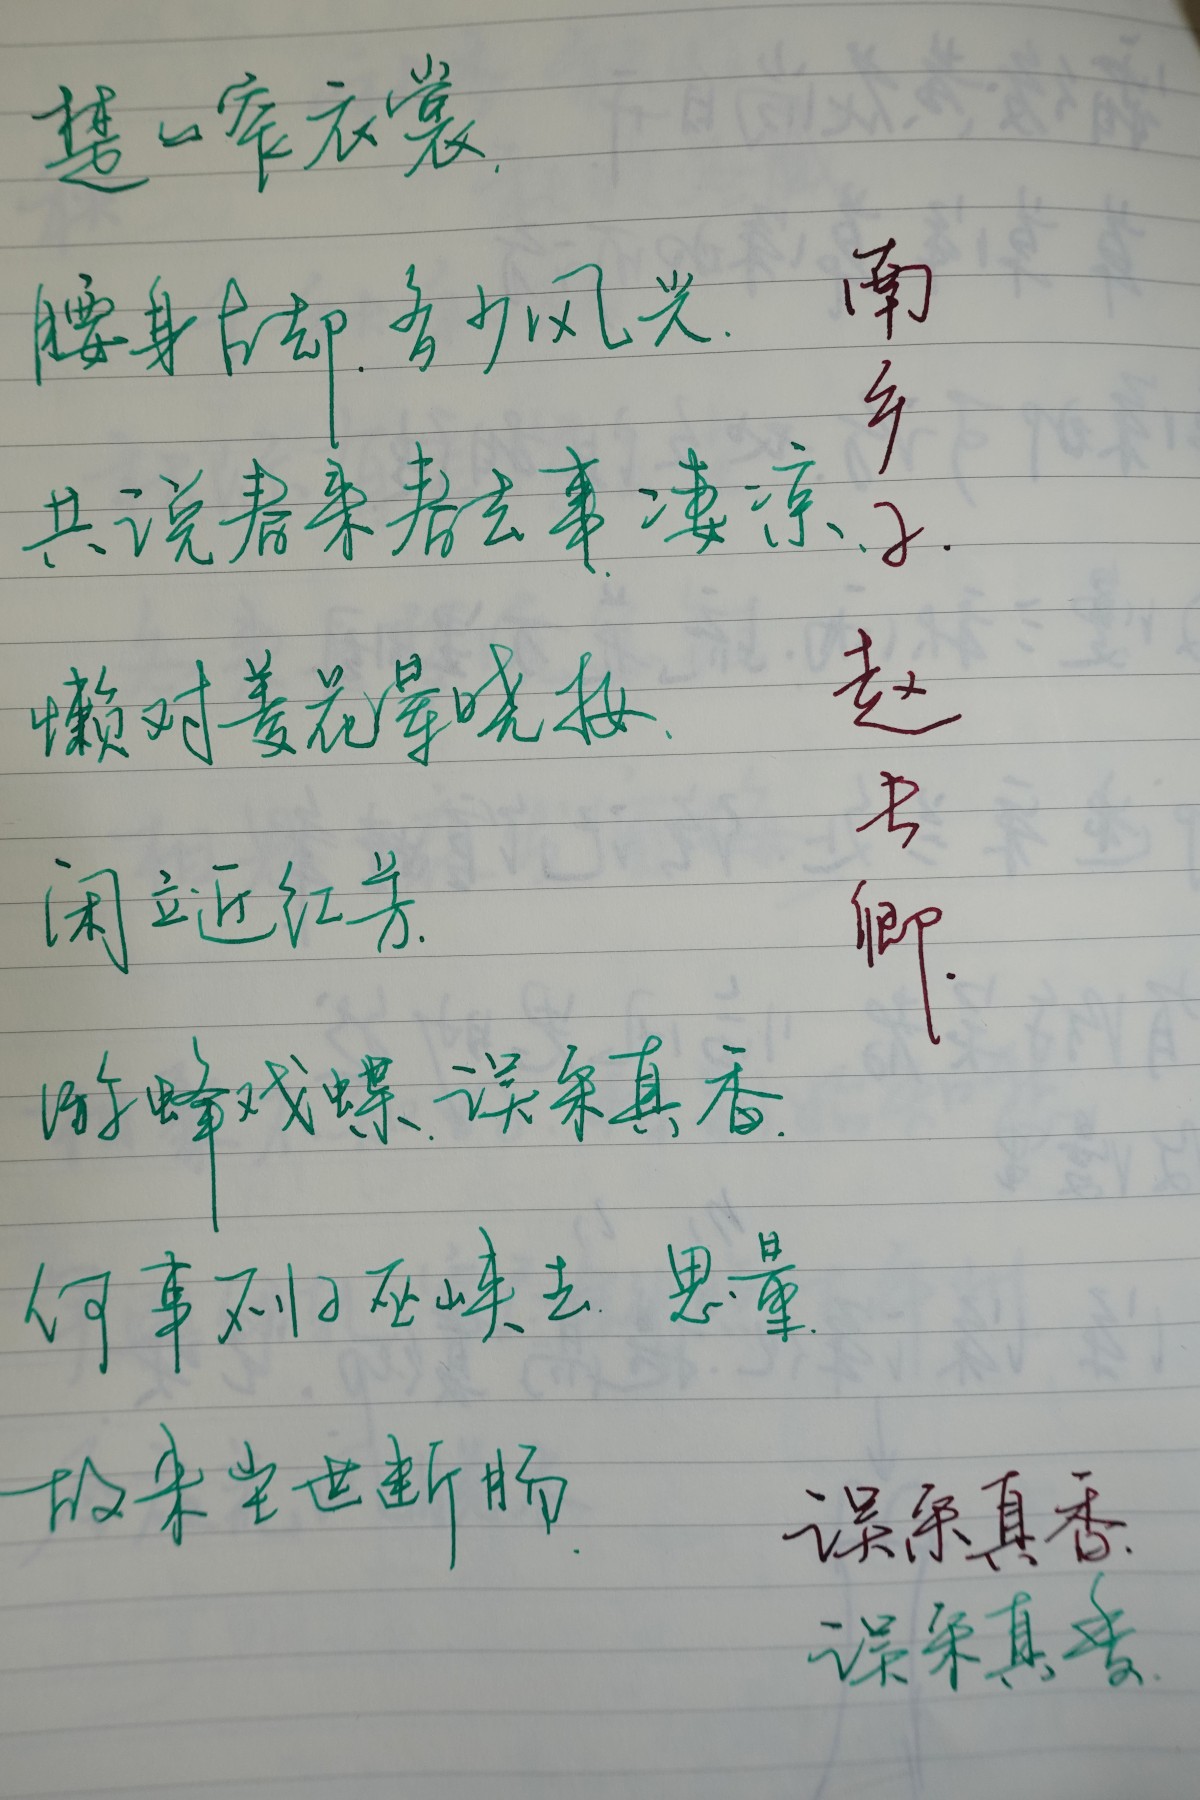 楚々窄衣裳.
腰身占却.多少风光.
共说春来春去事.凄凉.
懒对菱花晕晓妆.
闲立近红芳.
游蜂戏蝶.误采真香.
何事不归巫峡去.思量.
故来尘世断肠.
南乡子.
赵长卿.
误采真香.
误采真香.